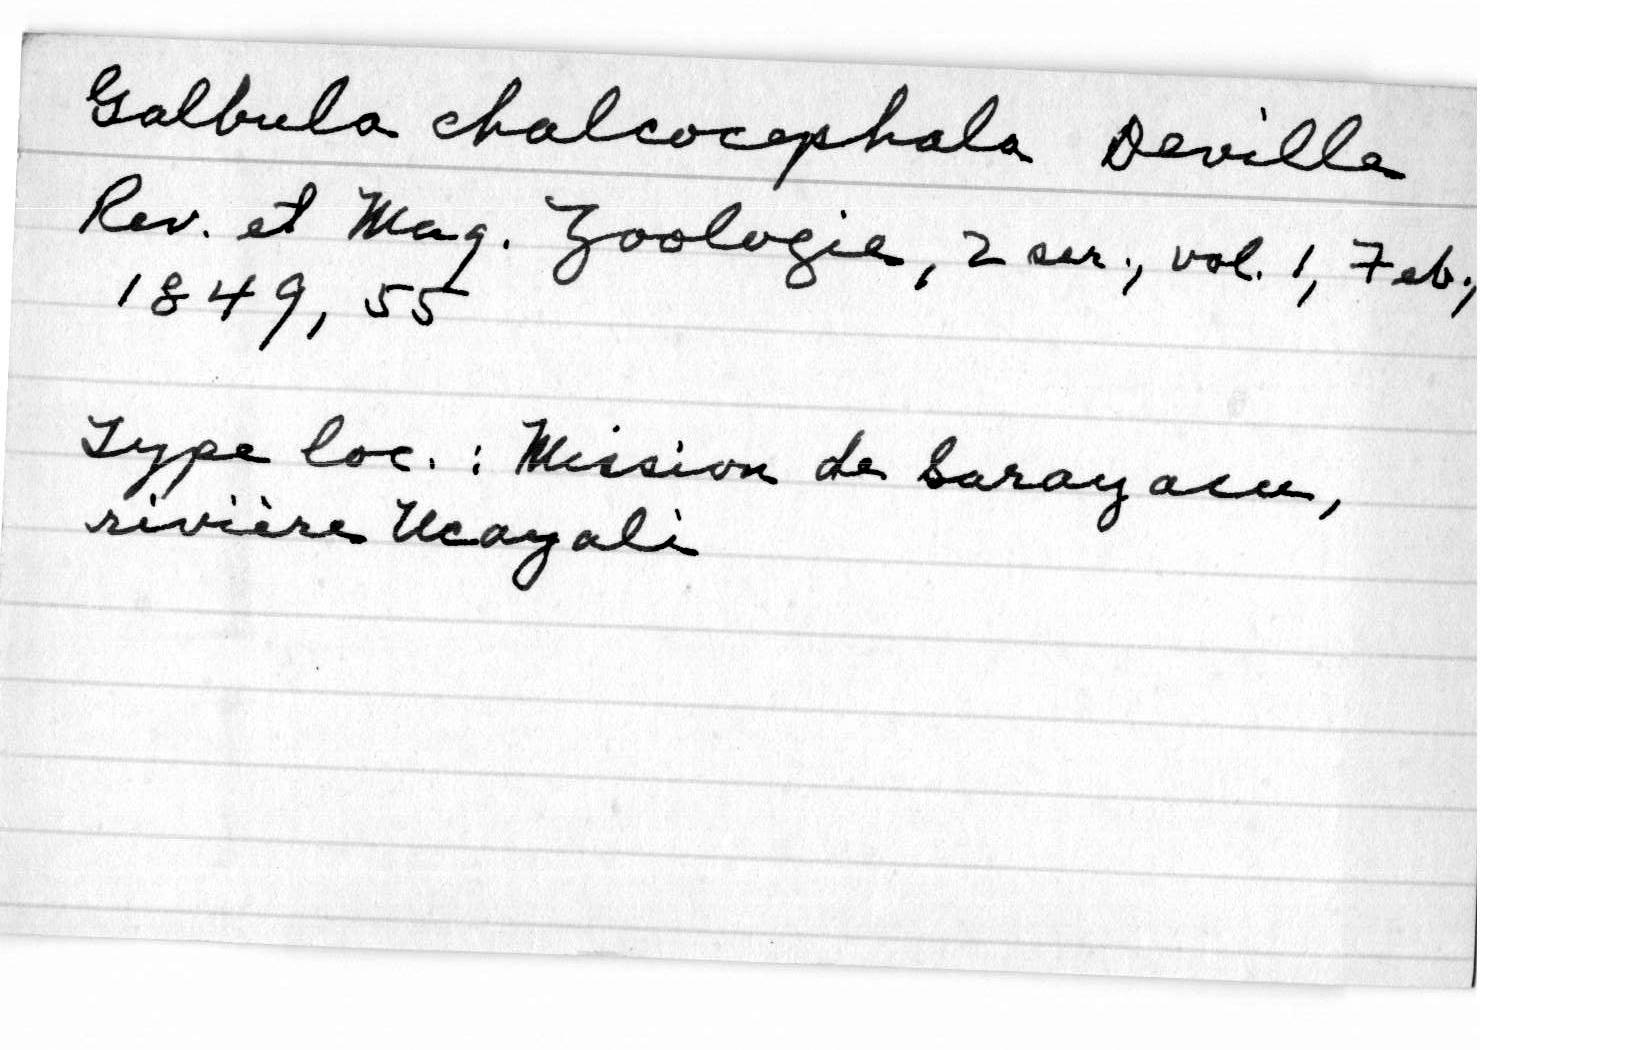 Galbula chalcocephala Deville
Rev. et Mag. Zoologie, 2 ser., vol. 1, Feb.,
1849, 55
Type loc. : Mission de Sarayacu,
rivière Ucayali